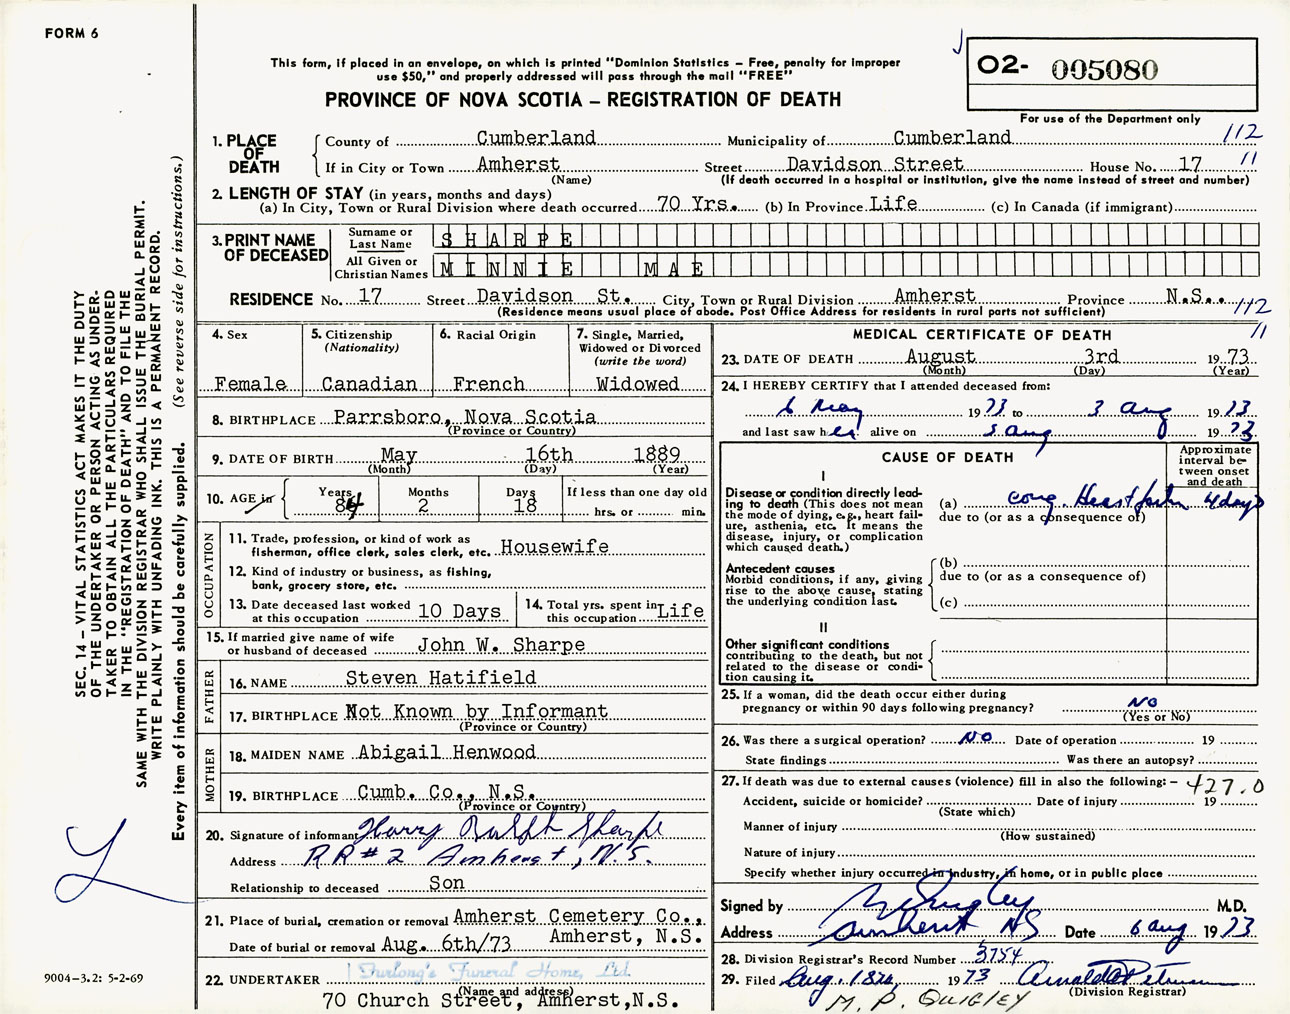 FORM 6
This form, if placed in an envelope, on which is printed "Dominion Statistics – Free, penalty for improper
use $50," and properly addressed will pass through the mail "FREE"
PROVINCE OF NOVA SCOTIA – REGISTRATION OF DEATH
O2- 005080
For use of the Department only
1. PLACE OF DEATH County of Cumberland Municipality of Cumberland 112
If in City or Town Amherst Street Davidson Street House No. 17 11
(Name) (If death occurred in a hospital or institution, give the name instead of street and number)
2. LENGTH OF STAY (in years, months and days)
(a) In City, Town or Rural Division where death occurred 70 Yrs. (b) In Province Life (c) In Canada (if immigrant)
3. PRINT NAME OF DECEASED Surname or Last Name SHARPE
All Given or Christian Names MINNIE MAE
RESIDENCE No. 17 Street Davidson St. City, Town or Rural Division Amherst Province N.S. 112
(Residence means usual place of abode. Post Office Address for residents in rural parts not sufficient) 11
4. Sex Female
5. Citizenship (Nationality) Canadian
6. Racial Origin French
7. Single, Married, Widowed or Divorced (write the word) Widowed
8. BIRTHPLACE Parrsboro, Nova Scotia
(Province or Country)
9. DATE OF BIRTH May 16th 1889
(Month) (Day) (Year)
10. AGE in Years 84 Months 2 Days 18 If less than one day old
hrs. or min.
OCCUPATION
11. Trade, profession, or kind of work as
fisherman, office clerk, sales clerk, etc. Housewife
12. Kind of industry or business, as fishing,
bank, grocery store, etc.
13. Date deceased last worked at this occupation 10 Days
14. Total yrs. spent in this occupation Life
15. If married give name of wife
or husband of deceased John W. Sharpe
FATHER
16. NAME Steven Hatifield
17. BIRTHPLACE Not Known by Informant
(Province or Country)
MOTHER
18. MAIDEN NAME Abigail Henwood
19. BIRTHPLACE Cumb. Co., N.S.
(Province or Country)
20. Signature of informant Harry Ralph Sharpe
Address RR#2 Amherst, N.S.
Relationship to deceased Son
21. Place of burial, cremation or removal Amherst Cemetery Co.,
Date of burial or removal Aug. 6th/73 Amherst, N.S.
22. UNDERTAKER Furlong's Funeral Home, Ltd.
(Name and address)
70 Church Street, Amherst, N.S.
MEDICAL CERTIFICATE OF DEATH
23. DATE OF DEATH August 3rd 1973
(Month) (Day) (Year)
24. I HEREBY CERTIFY that I attended deceased from:
6 May 1973 to 3 Aug 1973
and last saw her alive on 3 Aug 1973
CAUSE OF DEATH
Approximate interval between onset and death
I
Disease or condition directly lead-
ing to death (This does not mean
the mode of dying, e.g., heart fail-
ure, asthenia, etc. It means the
disease, injury, or complication
which caused death.)
(a) cong. Heart failure 4 days
due to (or as a consequence of)
Antecedent causes
Morbid conditions, if any, giving
rise to the above cause, stating
the underlying condition last.
(b)
due to (or as a consequence of)
(c)
II
Other significant conditions
contributing to the death, but not
related to the disease or condi-
tion causing it.
25. If a woman, did the death occur either during
pregnancy or within 90 days following pregnancy? NO
(Yes or No)
26. Was there a surgical operation? NO Date of operation 19
State findings Was there an autopsy?
27. If death was due to external causes (violence) fill in also the following: – 427.0
Accident, suicide or homicide? Date of injury 19
(State which)
Manner of injury
(How sustained)
Nature of injury
Specify whether injury occurred in industry, in home, or in public place
Signed by MP Quigley M.D.
Address Amherst NS Date 6 Aug 1973
28. Division Registrar's Record Number 3754
29. Filed Aug. 1973
(Division Registrar)
M. P. QUIGLEY
SEC. 14 – VITAL STATISTICS ACT MAKES IT THE DUTY
OF THE UNDERTAKER OR PERSON ACTING AS UNDER-
TAKER TO OBTAIN ALL THE PARTICULARS REQUIRED
IN THE "REGISTRATION OF DEATH" AND TO FILE THE
SAME WITH THE DIVISION REGISTRAR WHO SHALL ISSUE THE BURIAL PERMIT.
WRITE PLAINLY WITH UNFADING INK. THIS IS A PERMANENT RECORD.
Every item of information should be carefully supplied. (See reverse side for instructions.)
9004–3.2: 5-2-69